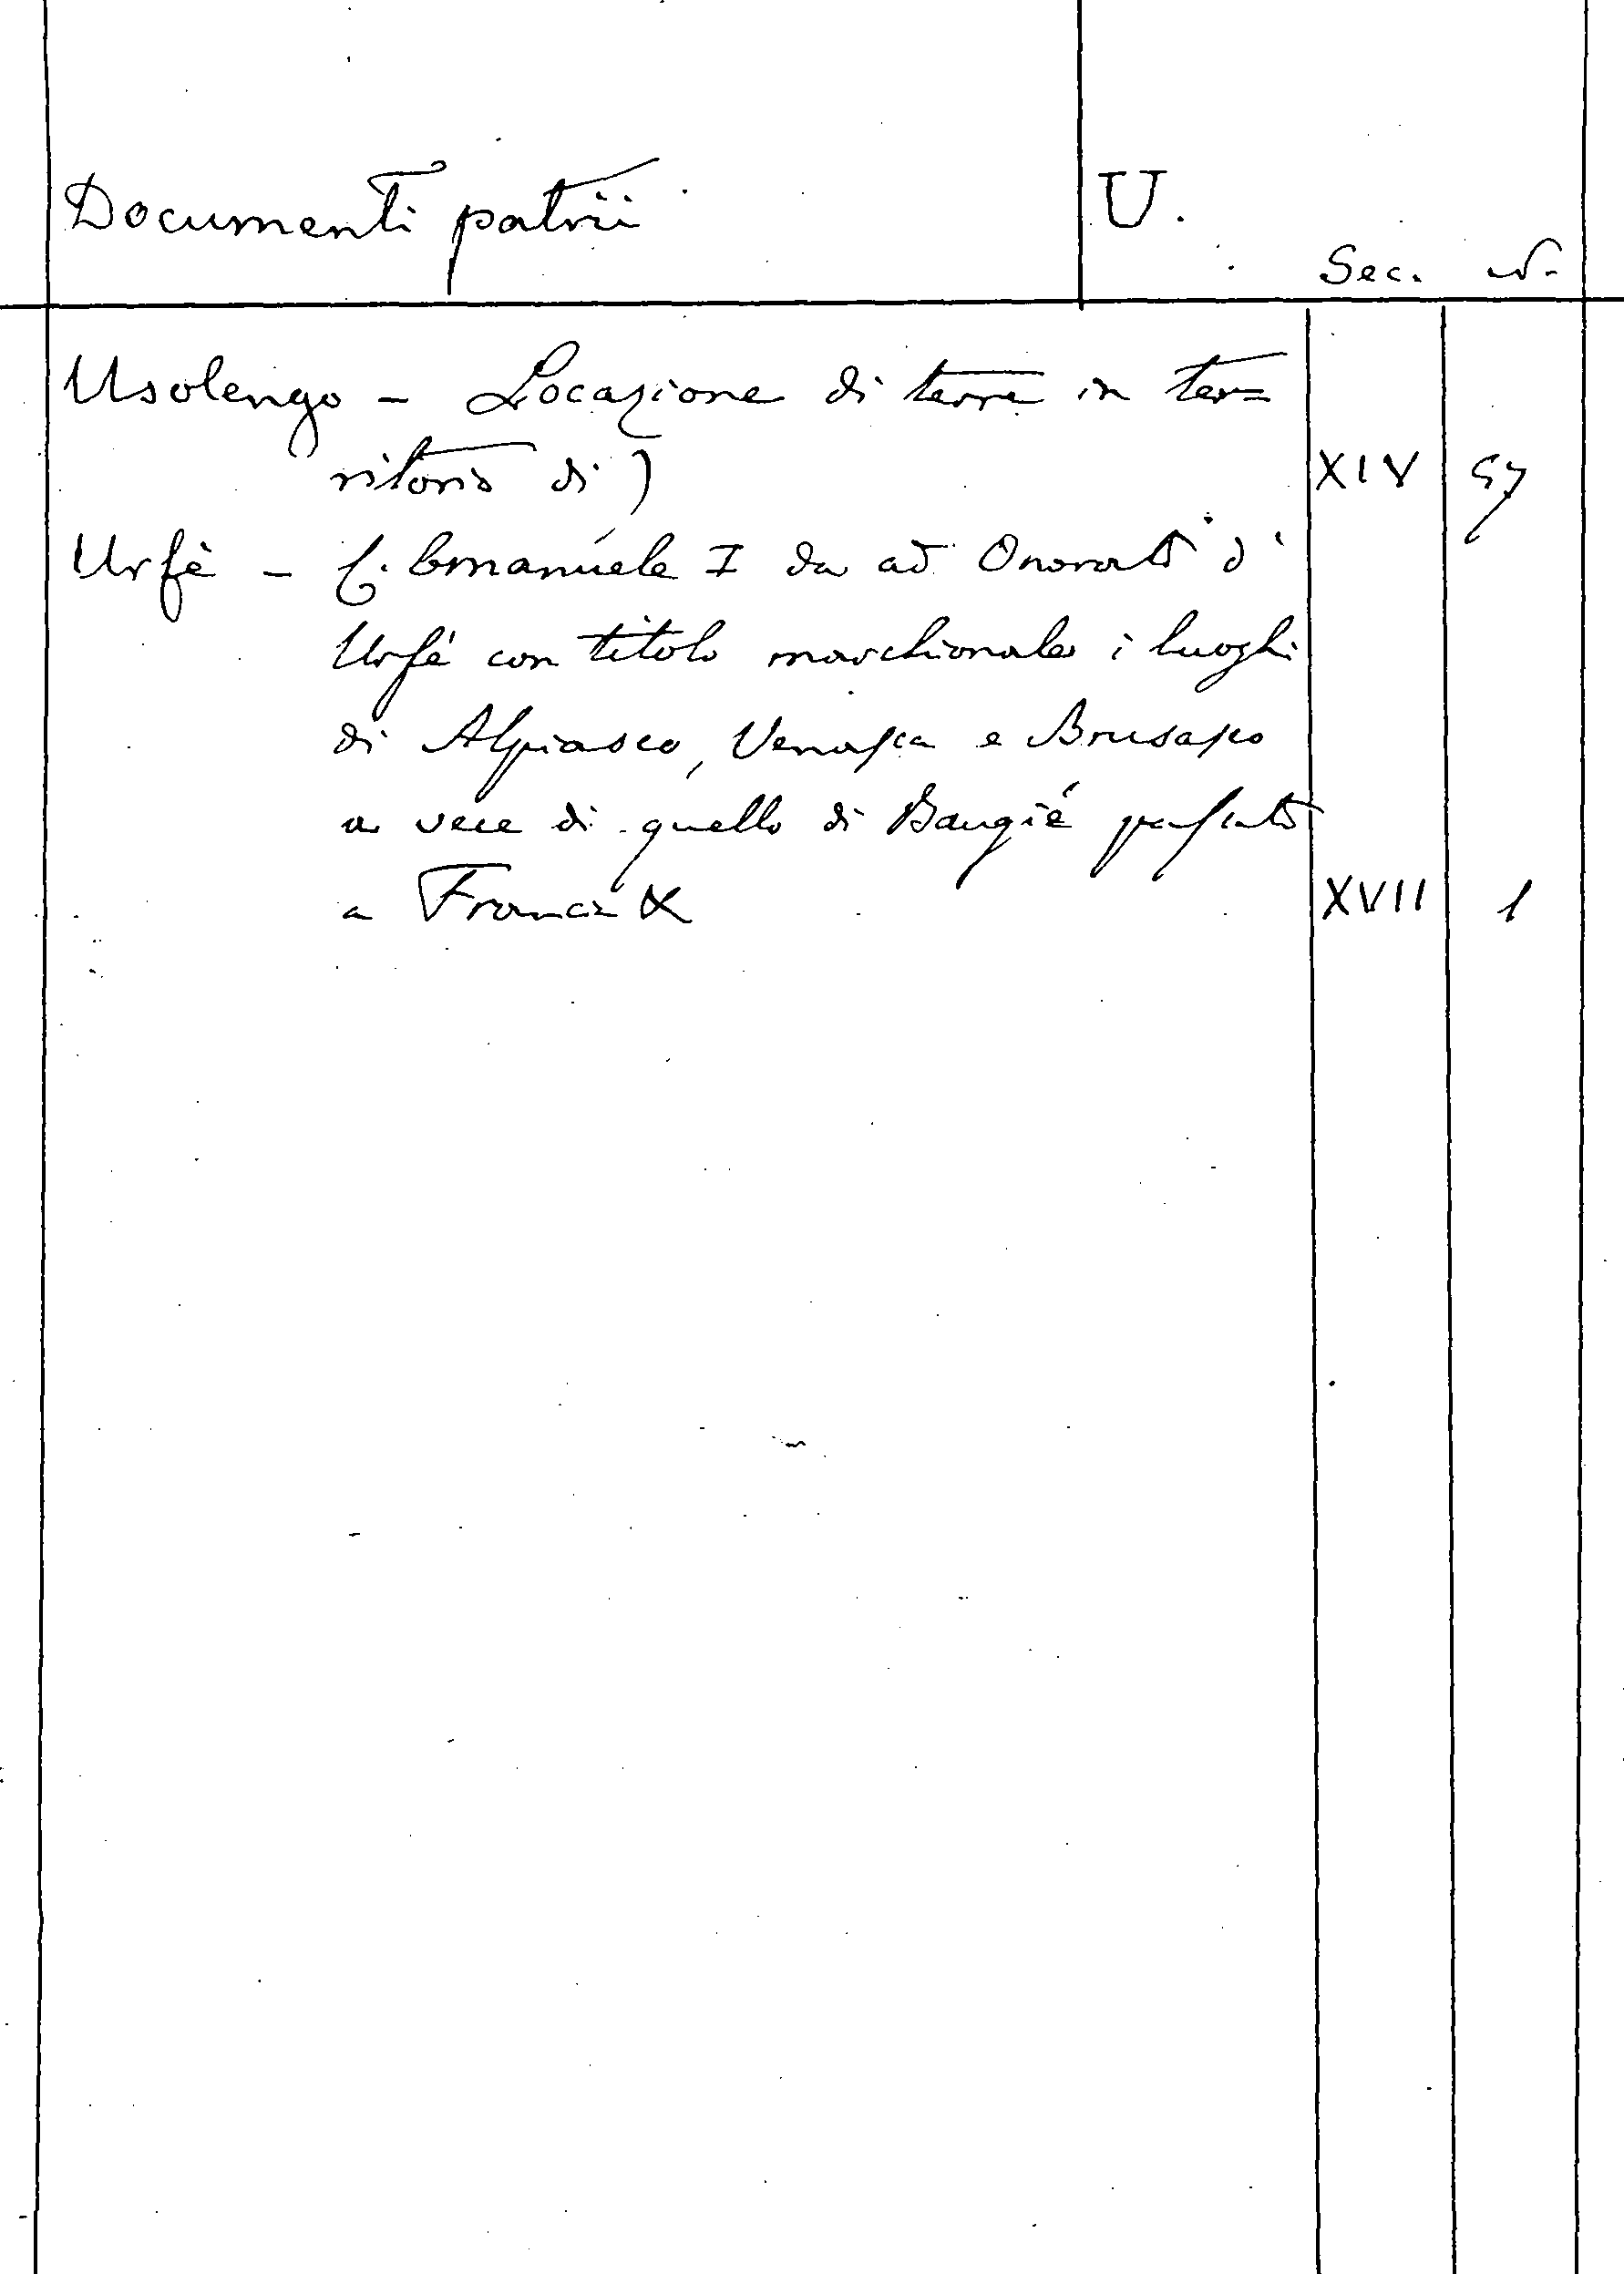 Documenti patrii U.
Sec. N.
Usolengo - Locazione di terre in ter=
ritorio di) XIV 57
Urfè - C. Emanuele I da ad Onorato d'
Urfé con titolo marchionale i luoghi
di Alpiasco, Venasca e Brusasco
a vece di quello di Baugié passato
a Francia XVII 1